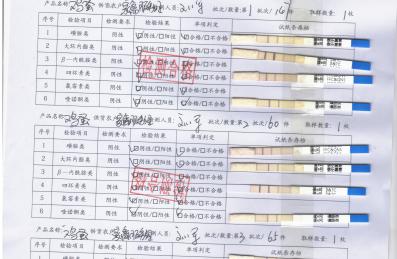 产品名称: 鸡蛋 供货农户: 检测人员: 批次/数量:第1 批次/ 件 取样数量: 1 枚
序号 检验项目 检测要求 检验结果 单项判定 试纸条存档
1 磺胺类 阴性 ☑阴性/□阳性 ☑合格/□不合格
2 大环内酯类 阴性 ☑阴性/□阳性 ☑合格/□不合格
3 β-内酰胺类 阴性 ☑阴性/□阳性 ☑合格/□不合格
4 四环素类 阴性 ☑阴性/□阳性 ☑合格/□不合格
5 氯霉素类 阴性 ☑阴性/□阳性 ☑合格/□不合格
6 喹诺酮类 阴性 ☑阴性/□阳性 ☑合格/□不合格
检验合格
产品名称: 鸡蛋 供货农户: 检测人员: 批次/数量:第2 批次/60 件 取样数量: 1 枚
序号 检验项目 检测要求 检验结果 单项判定 试纸条存档
1 磺胺类 阴性 ☑阴性/□阳性 ☑合格/□不合格
2 大环内酯类 阴性 ☑阴性/□阳性 ☑合格/□不合格
3 β-内酰胺类 阴性 ☑阴性/□阳性 ☑合格/□不合格
4 四环素类 阴性 ☑阴性/□阳性 ☑合格/□不合格
5 氯霉素类 阴性 ☑阴性/□阳性 ☑合格/□不合格
6 喹诺酮类 阴性 ☑阴性/□阳性 ☑合格/□不合格
检验合格
产品名称: 鸡蛋 供货农户: 检测人员: 批次/数量:第3 批次/65 件 取样数量: 1 枚
序号 检验项目 检测要求 检验结果 单项判定 试纸条存档